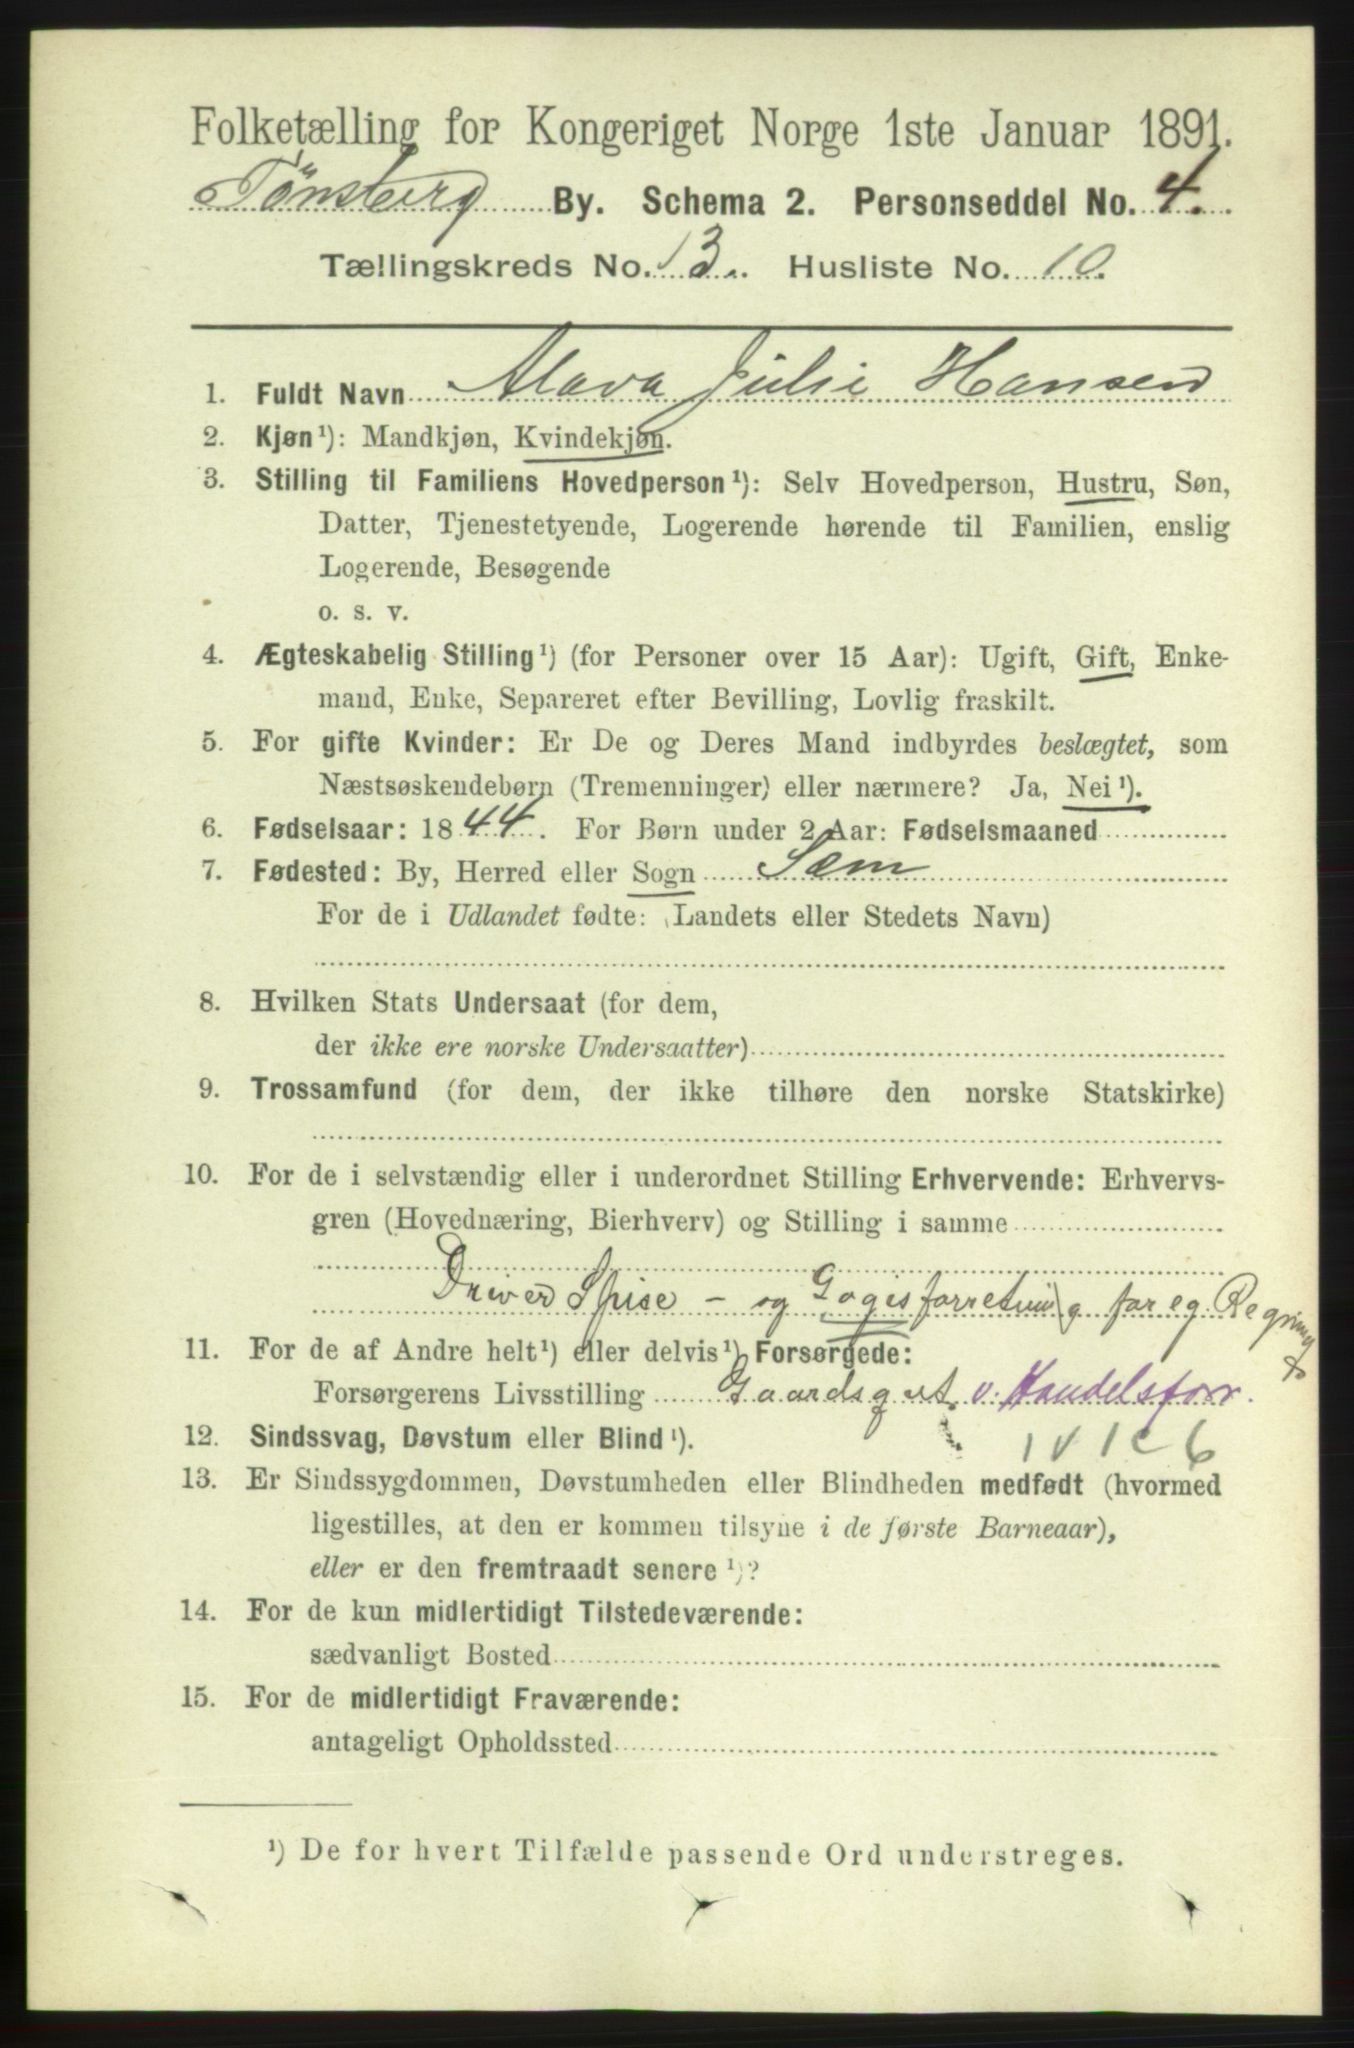 Folketælling for Kongeriget Norge 1ste Januar 1891.
Tönsberg By. Schema 2. Personseddel No. 4.
Tællingskreds No. 13. Husliste No. 10.
1. Fuldt Navn Julie Hansen
2. Kjøn¹): Mandkjøn, Kvindekjøn.
3. Stilling til Familiens Hovedperson¹): Selv Hovedperson, Hustru, Søn,
Datter, Tjenestetyende, Logerende hørende til Familien, enslig
Logerende, Besøgende
o. s. v.
4. Ægteskabelig Stilling¹) (for Personer over 15 Aar): Ugift, Gift, Enke-
mand, Enke, Separeret efter Bevilling, Lovlig fraskilt.
5. For gifte Kvinder: Er De og Deres Mand indbyrdes beslægtet, som
Næstsøskendebørn (Tremenninger) eller nærmere? Ja, Nei¹).
6. Fødselsaar: 1844. For Børn under 2 Aar: Fødselsmaaned
7. Fødested: By, Herred eller Sogn Sem
For de i Udlandet fødte: (Landets eller Stedets Navn)
8. Hvilken Stats Undersaat (for dem,
der ikke ere norske Undersaatter)
9. Trossamfund (for dem, der ikke tilhøre den norske Statskirke)
10. For de i selvstændig eller i underordnet Stilling Erhvervende: Erhvervs-
gren (Hovednæring, Bierhverv) og Stilling i samme
Driver Spise - og Logisforretning for eg. Regning
11. For de af Andre helt¹) eller delvis¹) Forsørgede:
Forsørgerens Livsstilling Gaardsgut v. Handelsforr.
12. Sindssvag, Døvstum eller Blind¹).
13. Er Sindssygdommen, Døvstumheden eller Blindheden medfødt (hvormed
ligestilles, at den er kommen tilsyne i de første Barneaar),
eller er den fremtraadt senere¹)?
14. For de kun midlertidigt Tilstedeværende:
sædvanligt Bosted
15. For de midlertidigt Fraværende:
antageligt Opholdssted
¹) De for hvert Tilfælde passende Ord understreges.